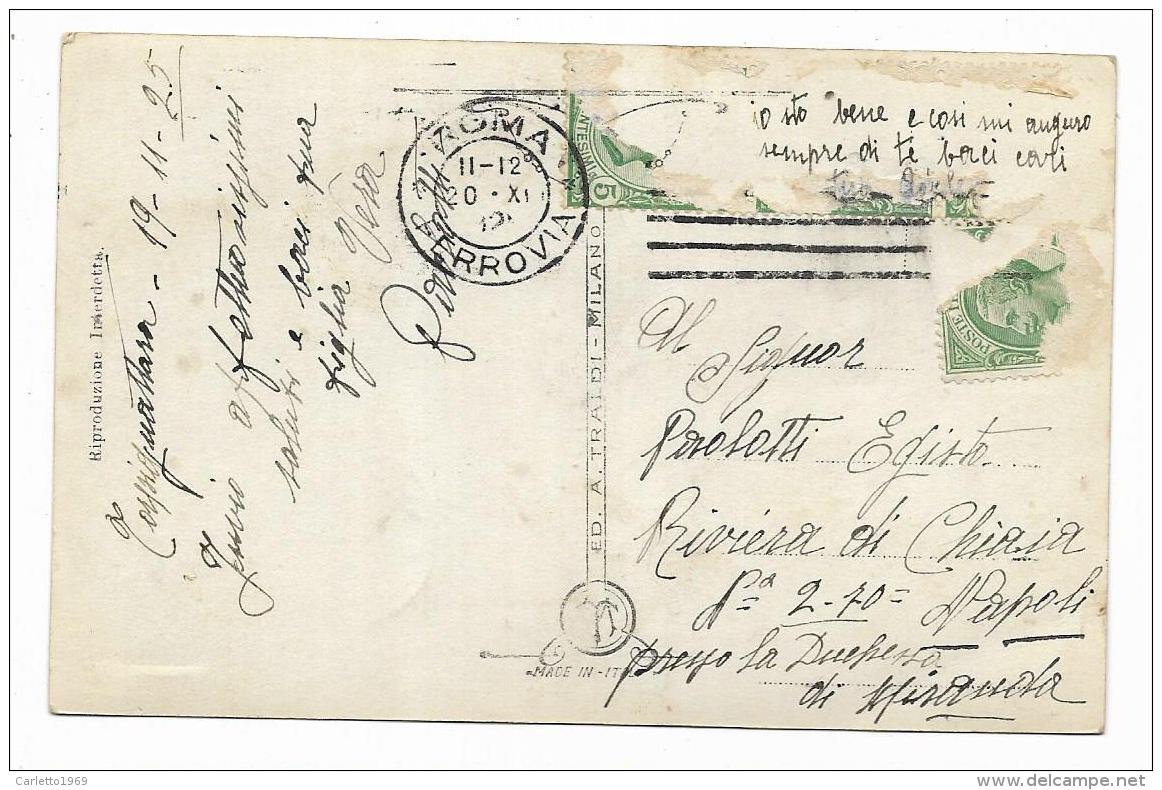 19-11-25
Invio affettuosissimi
saluti e baci tua
figlia Vera
Riproduzione Interdetta
ROMA
11-12
20 · XI
FERROVIA
5
POSTE
io sto bene e così mi auguro
sempre di te baci cari
ED. A. TRALDI - MILANO
MADE IN - IT
Al Signor
Paolotti Egisto
Riviera di Chiaia
Nº 2-70= Napoli
presso la Duchessa
di Miranda
Carletto1969
delcampe.net